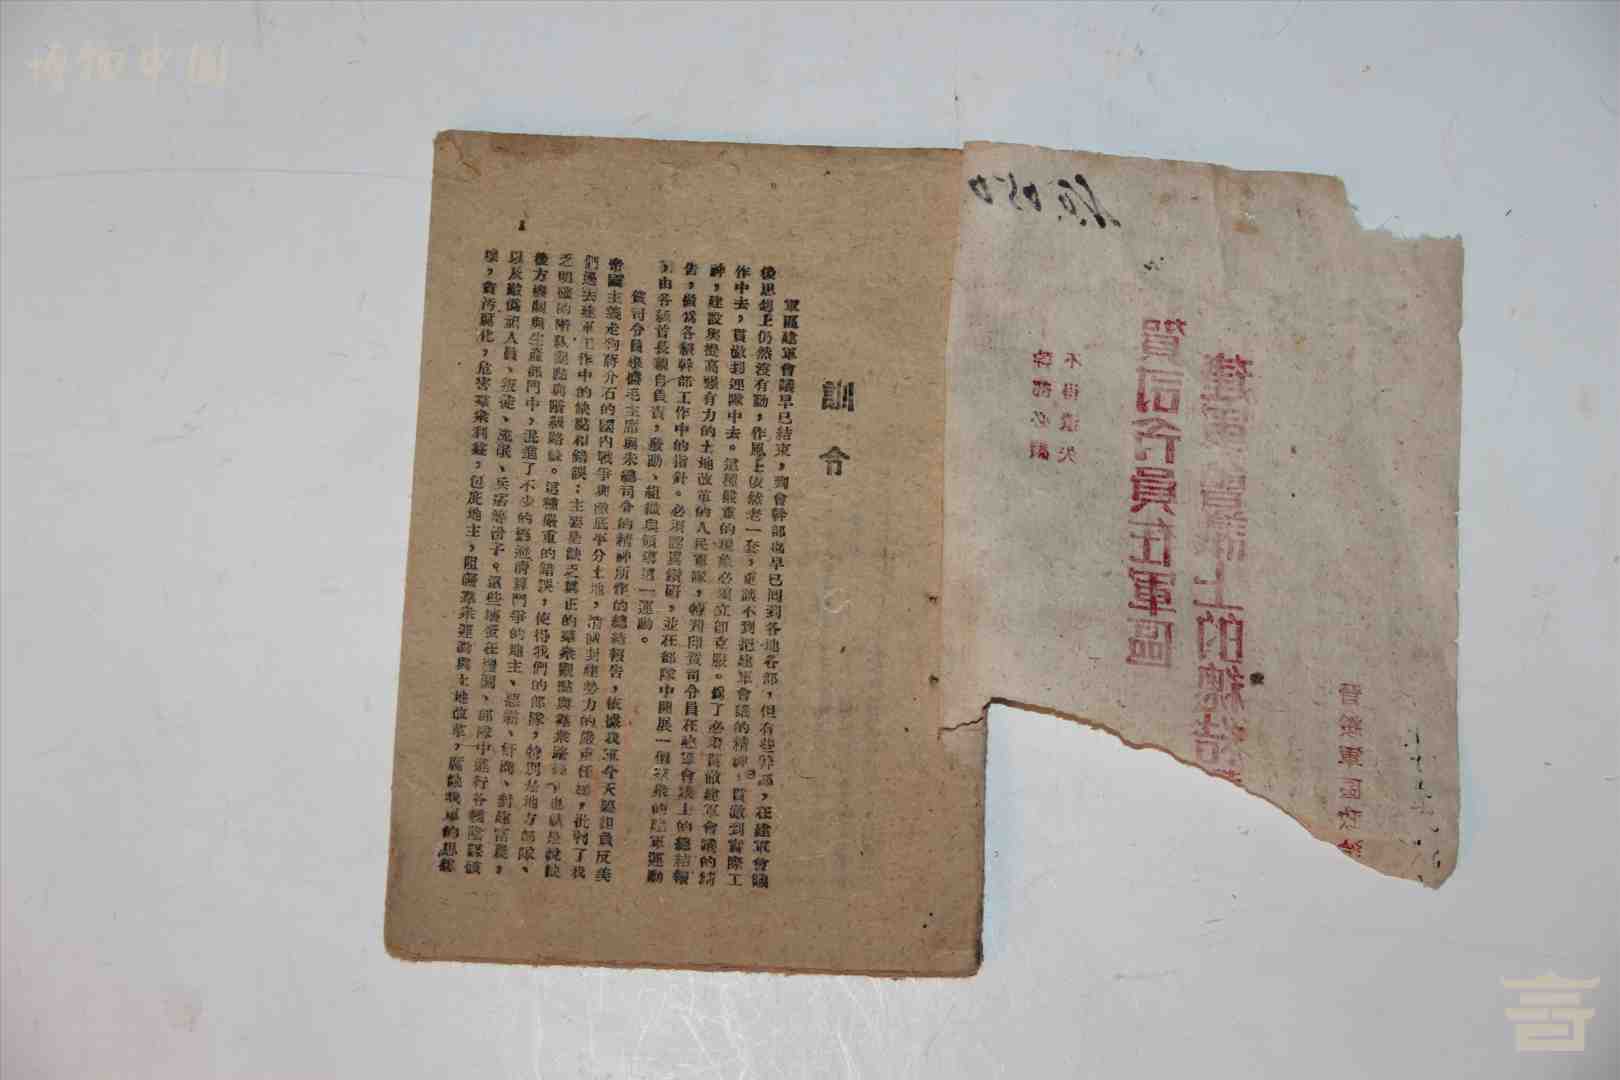 博物中國
訓令
軍區建軍會議早已結束，到會幹部亦早已回到各地各部，但有些幹部，在建軍會議
後思想上仍然沒有動，作風上依然老一套，重談不到把建軍會議的精神，貫徹到實際工
作中去，貫徹到連隊中去。這種嚴重的現象必須立即克服。為了必須貫徹建軍會議的精
神，建設與提高強有力的土地改革的人民軍隊，特判印賀司令員在建軍會議上的總結報
告，做為各級幹部工作中的指針。必須認真鑽研，並在部隊中開展一個羣眾的建軍運動
，由各級首長親自負責，發動、組織與領導這一運動。
賀司令員根據毛主席與朱總司令的精神所作的總結報告，依據我軍今天擔負反美
帝國主義走狗蔣介石的國內戰爭與徹底平分土地，消滅封建勢力的嚴重任務，批判了我
們過去建軍工作中的缺點和錯誤：主要是缺乏真正的羣眾觀點與羣眾路線，也就是說缺
乏明確的階級觀點與階級路線。這種嚴重的錯誤，使得我們的部隊，特別是地方部隊、
後方機關與生產部門中，混進了不少的逃避清算鬥爭的地主、惡霸、奸商、封建富農，
以及敵偽諜人員、叛徒、流氓、兵痞等份子。這些壞蛋在機關、部隊中進行各種陰謀破
壞，貪污腐化，危害羣眾利益，包庇地主，阻礙羣眾運動與土地改革，腐蝕我軍的思想
1
No.
賀司令員在軍區
建軍會議上的總結
不得遺失
幹部必讀
晉綏軍區